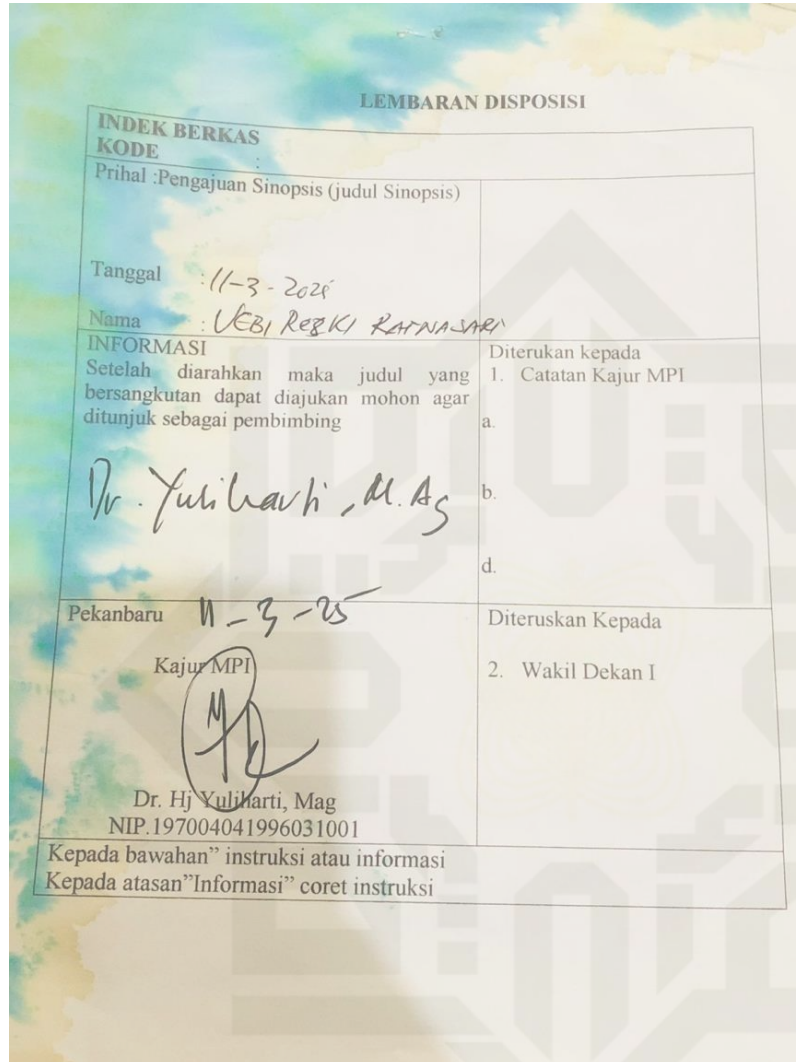 LEMBARAN DISPOSISI
INDEK BERKAS
KODE :
Prihal :Pengajuan Sinopsis (judul Sinopsis)
Tanggal : 11-3-2025
Nama : VEBI REZKI RATNASARI
INFORMASI
Setelah diarahkan maka judul yang
bersangkutan dapat diajukan mohon agar
ditunjuk sebagai pembimbing
Dr. Yuliharti, M.Ag
Diterukan kepada
1. Catatan Kajur MPI
a.
b.
d.
Pekanbaru 11-3-25
Kajur MPI
Dr. Hj Yuliharti, Mag
NIP.197004041996031001
Diteruskan Kepada
2. Wakil Dekan I
Kepada bawahan” instruksi atau informasi
Kepada atasan”Informasi” coret instruksi